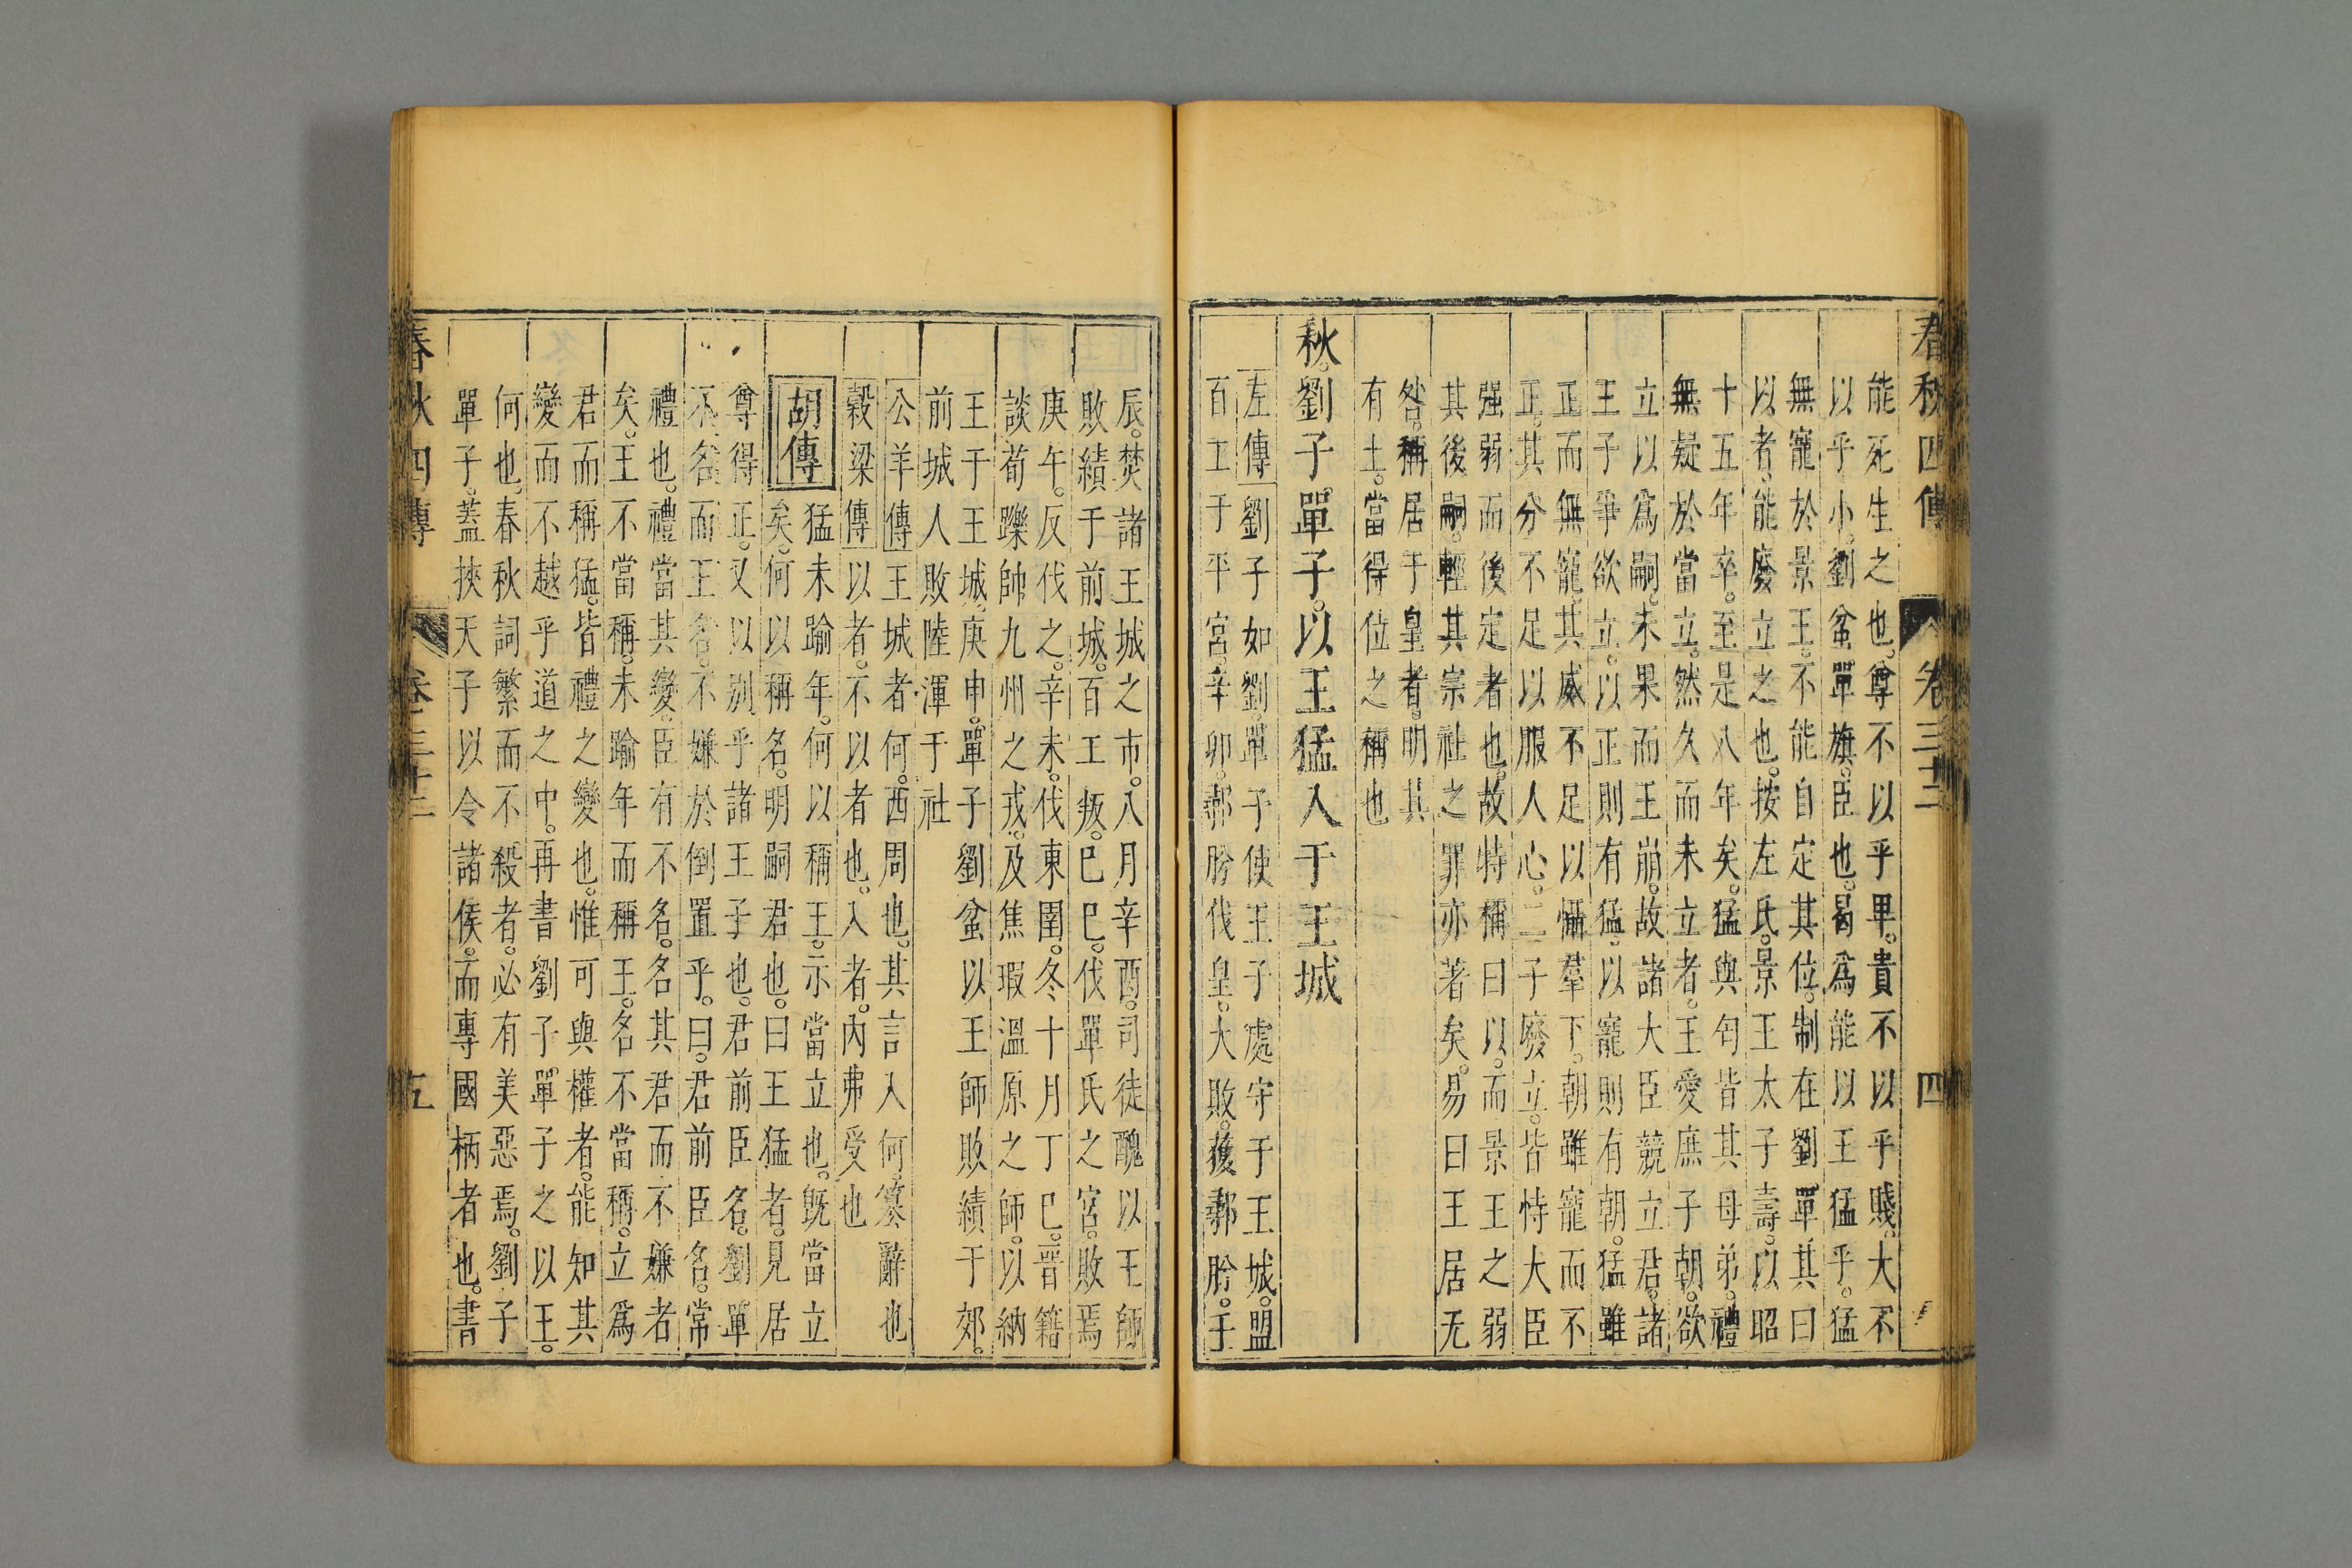 春秋四傳 卷三十二 四
能死生之也。尊不以乎卑。貴不以乎賤。大不
以乎小。劉盆。單旗。臣也。曷為能以王猛乎。猛
無寵於景王。不能自定其位。制在劉單。其曰
以者。能廢立之也。按左氏。景王太子壽。以昭
十五年卒。至是八年矣。猛與匄皆其母弟。禮
無疑於當立。然久而未立者。王愛庶子朝。欲
立以為嗣。未果而王崩。故諸大臣競立君。諸
王子爭欲立。以正則有猛。以寵則有朝。猛雖
正而無寵。其威不足以懾羣下。朝雖寵而不
正。其分不足以服人心。二子廢立。皆恃大臣
强弱而後定者也。故特稱曰以。而景王之弱
其後嗣。輕其宗社之罪亦著矣。易曰王居无
咎。稱居于皇者。明其
有土。當得位之稱也
秋。劉子。單子。以王猛入于王城
左傳劉子如劉。單子使王子處守于王城。盟
百工于平宮。辛卯。鄩肹伐皇。大敗。獲鄩肹。壬
辰。焚諸王城之市。八月辛酉。司徒醜以王師
敗績于前城。百工叛。已巳。伐單氏之宮。敗焉
庚午。反伐之。辛未。伐東圉。冬十月丁巳。晉籍
談荀躒帥九州之戎。及焦瑕溫原之師。以納
王于王城。庚申。單子劉盆以王師敗績于郊。
前城人敗陸渾于社
公羊傳王城者何。西周也。其言入何。篡辭也
穀梁傳以者。不以者也。入者。內弗受也
胡傳猛未踰年。何以稱王。示當立也。旣當立
矣。何以稱名。明嗣君也。曰王猛者。見居
尊得正。又以別乎諸王子也。君前臣名。劉單
不名而王名。不嫌於倒置乎。曰。君前臣名。常
禮也。禮當其變。臣有不名。名其君而不嫌者
矣。王不當稱。未踰年而稱王。名不當稱。立為
君而稱猛。皆禮之變也。惟可與權者。能知其
變而不越乎道之中。再書劉子單子之以王。
何也。春秋詞繁而不殺者。必有美惡焉。劉子
單子。蓋挾天子以令諸侯。而專國柄者也。書
春秋四傳 卷三十二 五